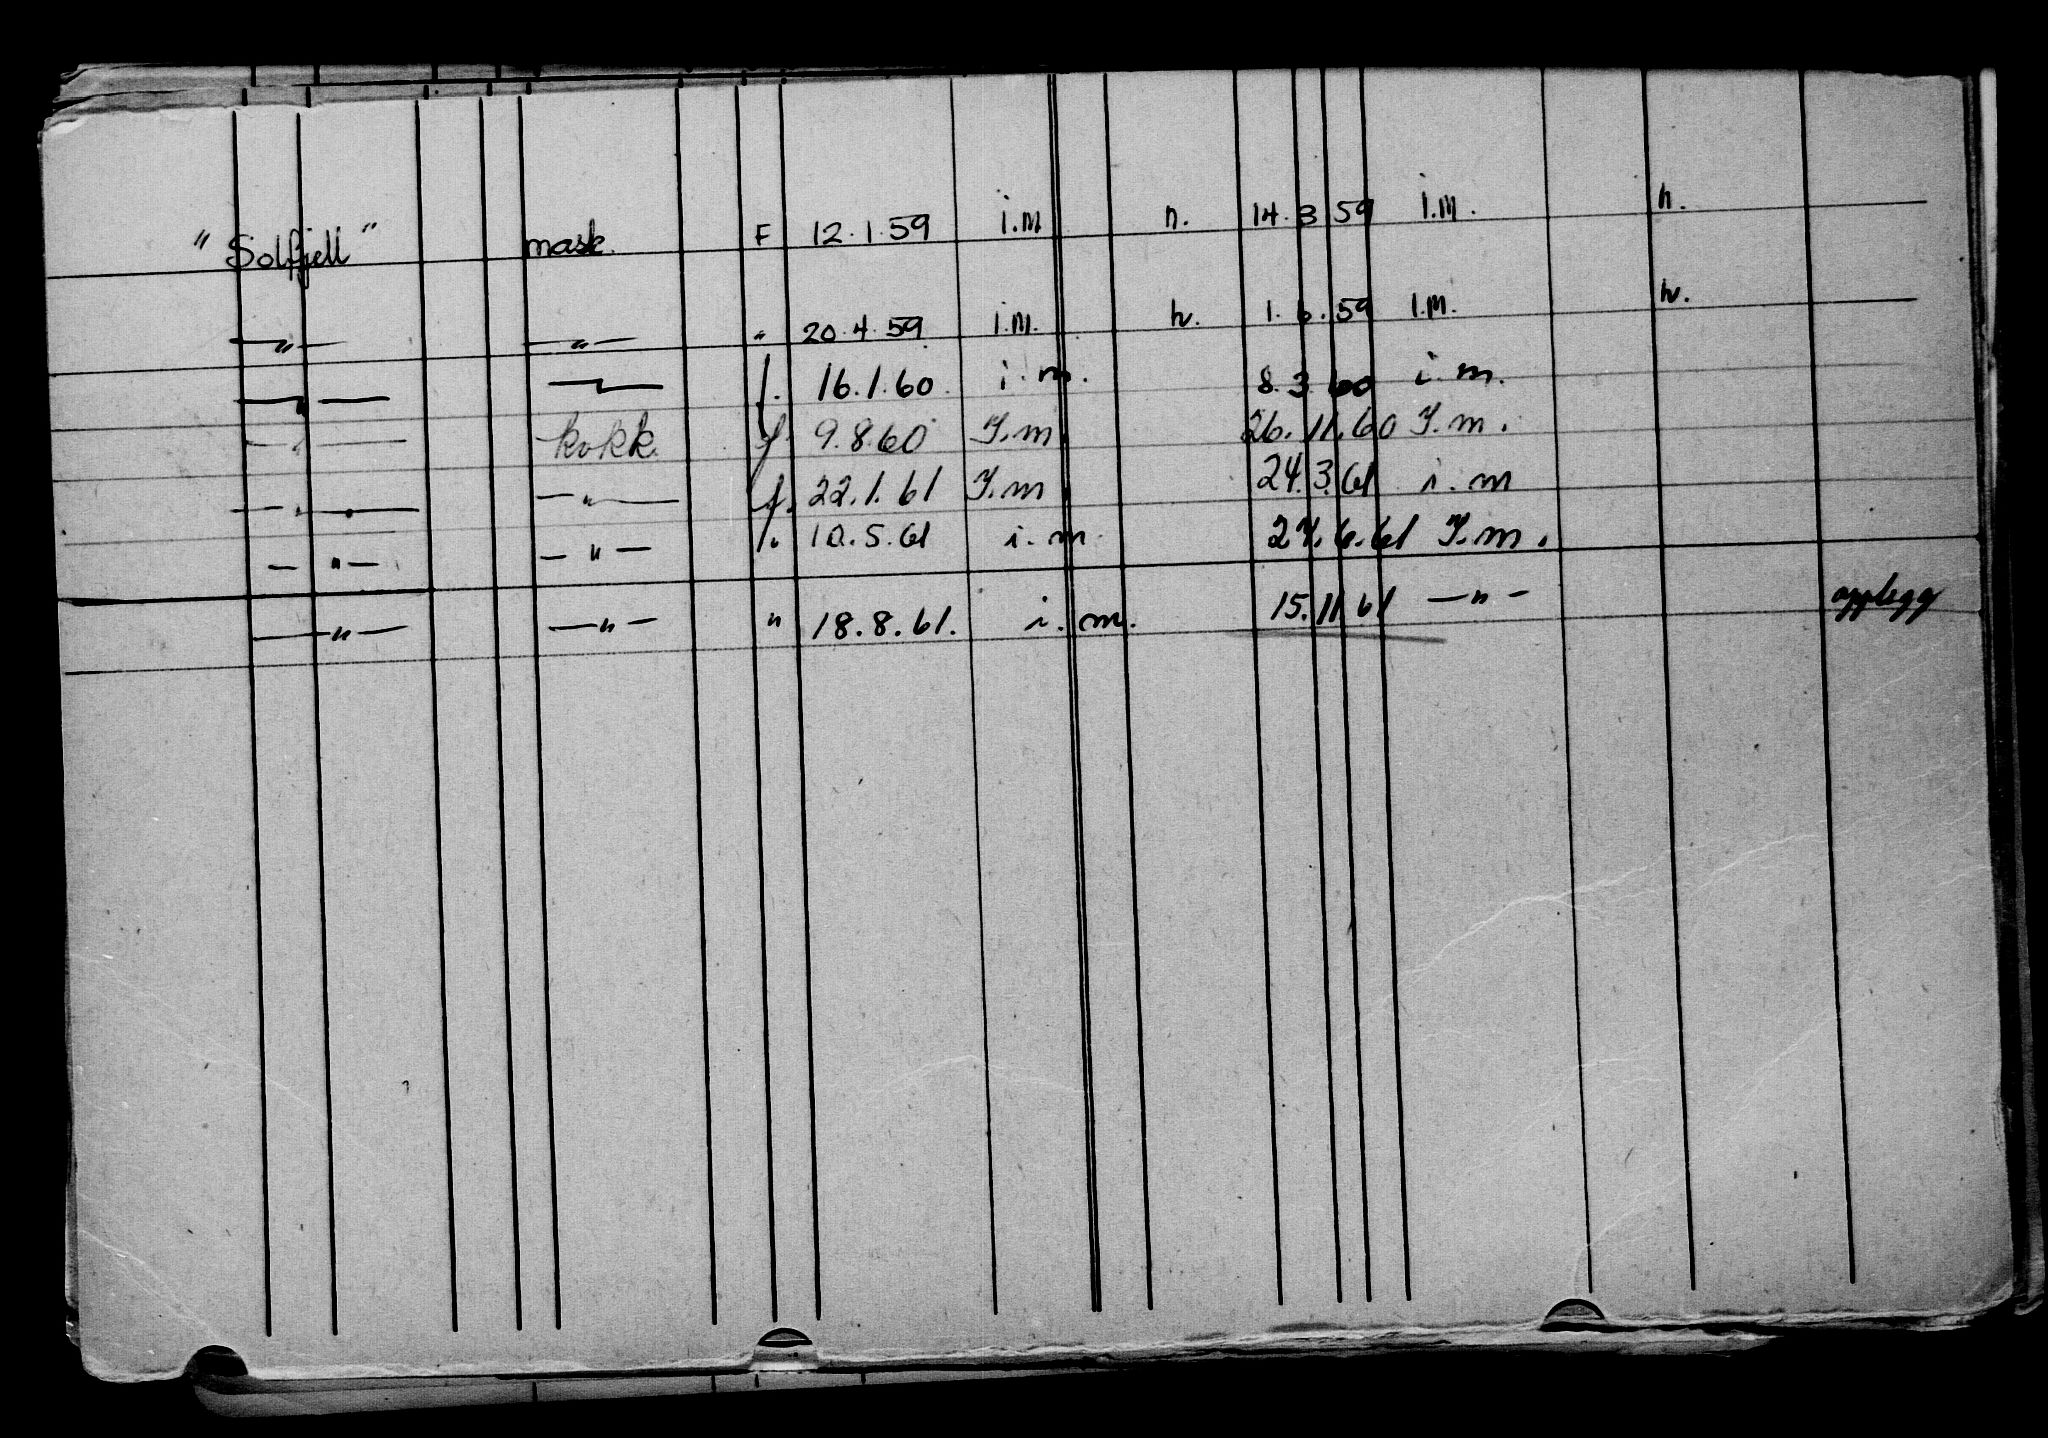 "Solfjell" mask. F 12.1.59 i.M h. 14.3.59 I.M. h.
—"— —"— " 20.4.59 I.M. h. 1.6.59 I.M. h.
—"— —"— f. 16.1.60. i.m. 8.3.60 i.m.
—"— kokk. f. 9.8.60 I.m. 26.11.60 I.m.
—"— —"— f. 22.1.61 I.m. 24.3.61 i.m
—"— —"— f. 10.5.61 i.m. 27.6.61 I.m.
—"— —"— " 18.8.61. i.m. 15.11.61 —"— opplegg